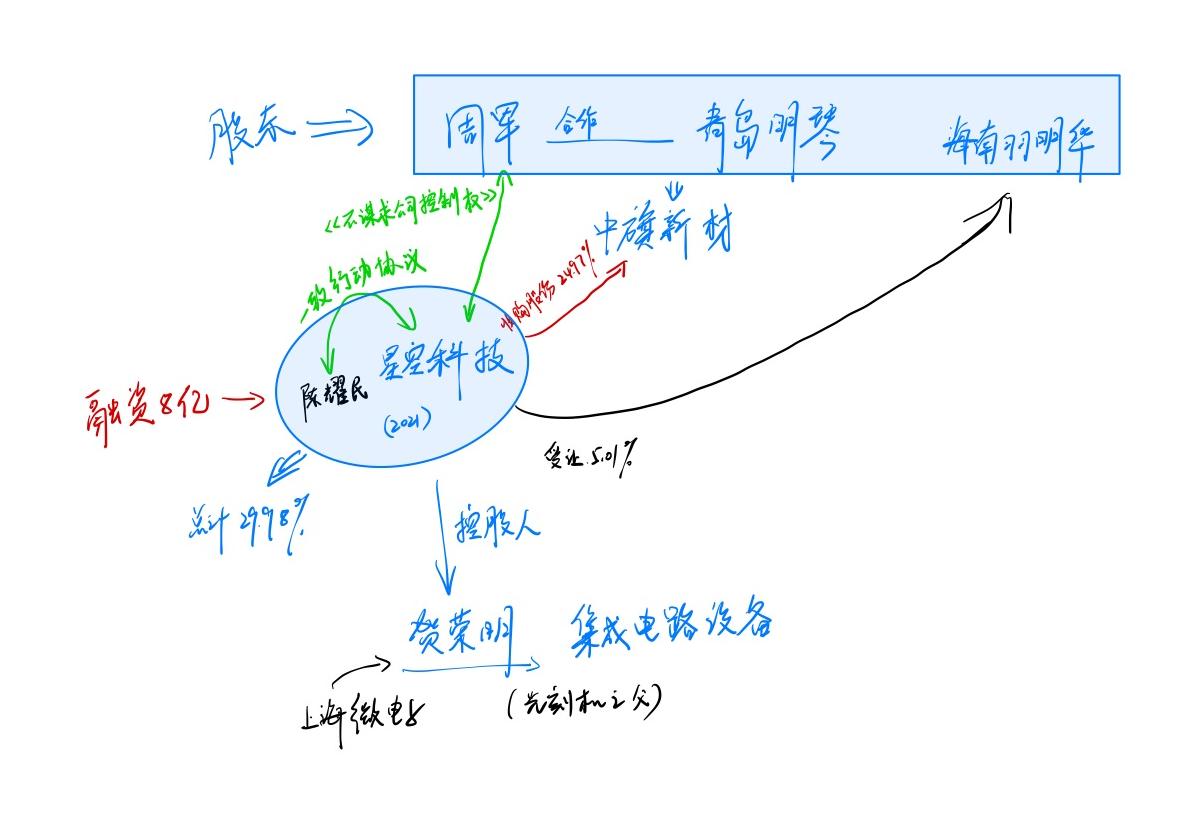 股东
周军 合作 青岛明琴 海南羽明华
《不谋求公司控制权》
中旗新材
一致行动协议
收购股份 24.97%
星空科技
陈耀民
(2021)
融资8亿
受让 5.01%
总计 29.98%
控股人
贺荣明 集成电路设备
上海微电子
(光刻机之父)